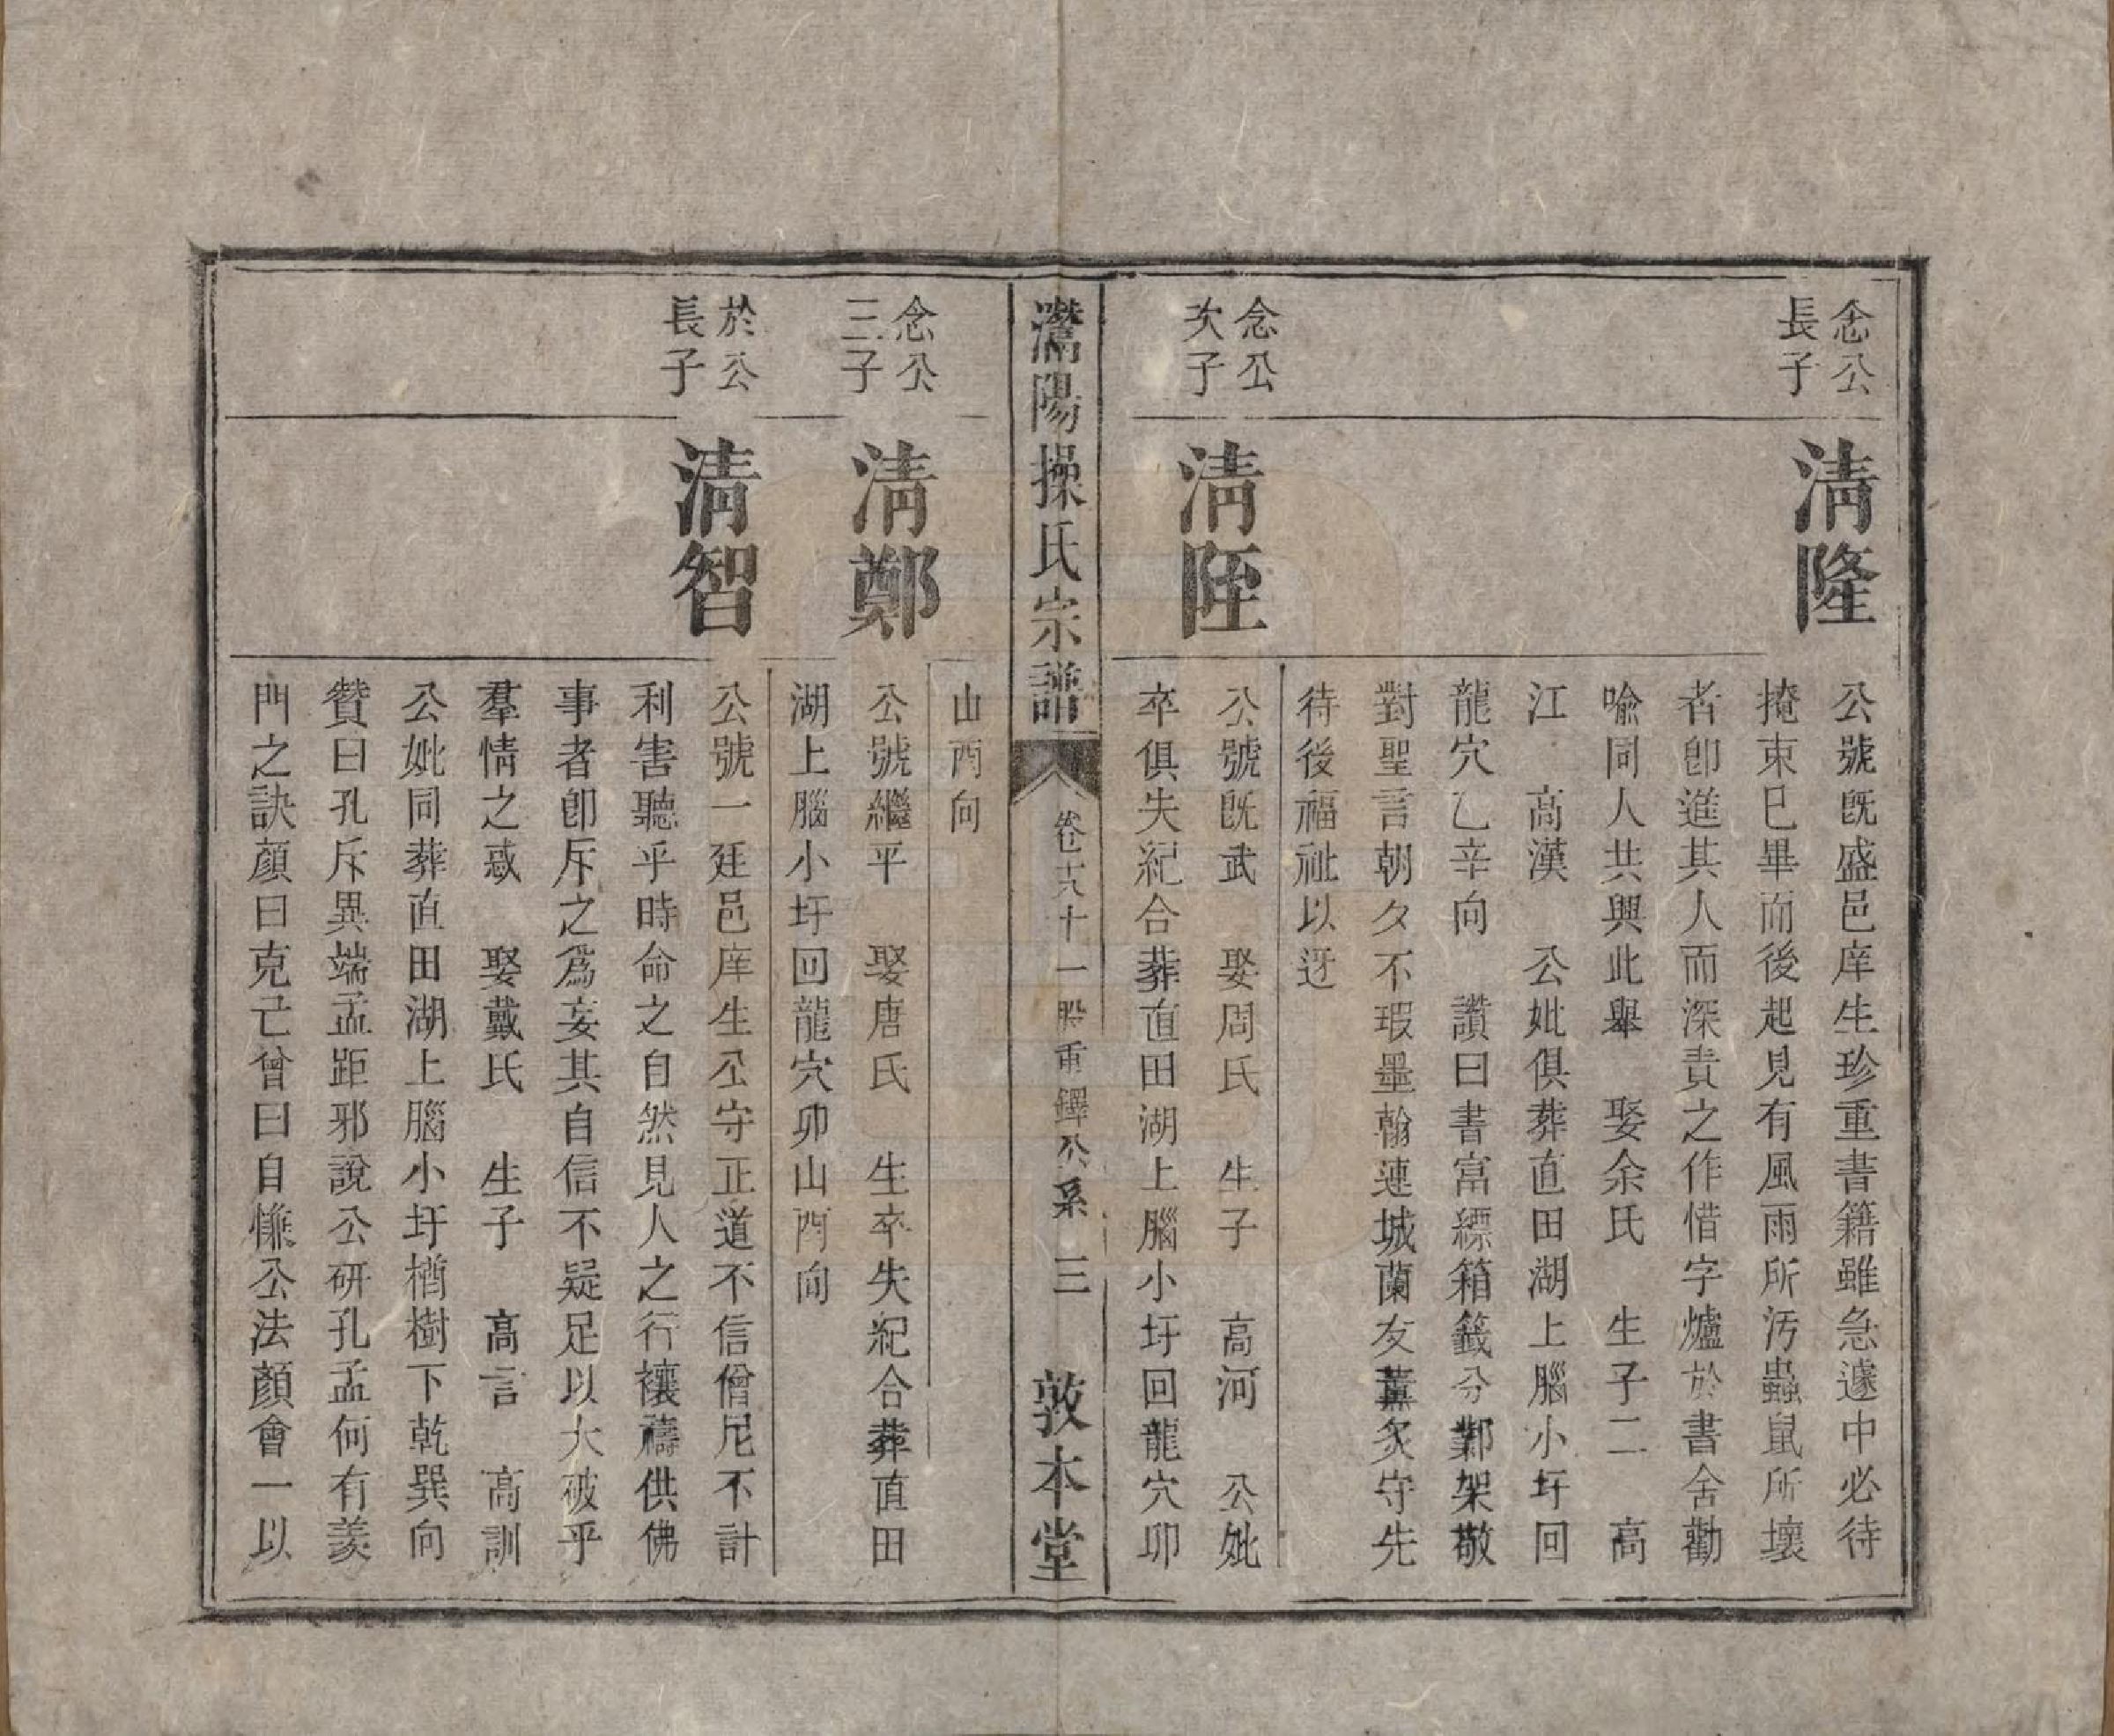 念公
長子
清隆
公號旣盛邑庠生珍重書籍雖急遽中必待
掩束巳畢而後起見有風雨所汚蟲鼠所壞
者卽進其人而深責之作惜字爐於書舍勸
喩同人共興此舉　娶余氏　生子二　高
江　高漢　公妣俱葬直田湖上腦小圩回
龍穴乙辛向　讚曰書富縹箱籤分鄴架敬
對聖言朝夕不瑕墨翰連城蘭友薰炙守先
待後福祉以迓
念公
次子
清陞
公號旣武　娶周氏　生子　高河　公妣
卒俱失紀合葬直田湖上腦小圩回龍穴卯
灊陽操氏宗譜
卷十六十一股重鐸公系　三
敦本堂
山酉向
念公
三子
清鄭
公號繼平　娶唐氏　生卒失紀合葬直田
湖上腦小圩回龍穴卯山酉向
於公
長子
清智
公號一廷邑庠生公守正道不信僧尼不計
利害聽乎時命之自然見人之行禳禱供佛
事者卽斥之爲妄其自信不疑足以大破乎
羣情之惑　娶戴氏　生子　高言　高訓
公妣同葬直田湖上腦小圩楢樹下乾巽向
贊曰孔斥異端孟距邪說公研孔孟何有羨
門之訣顏曰克己曾曰自慊公法顏會一以